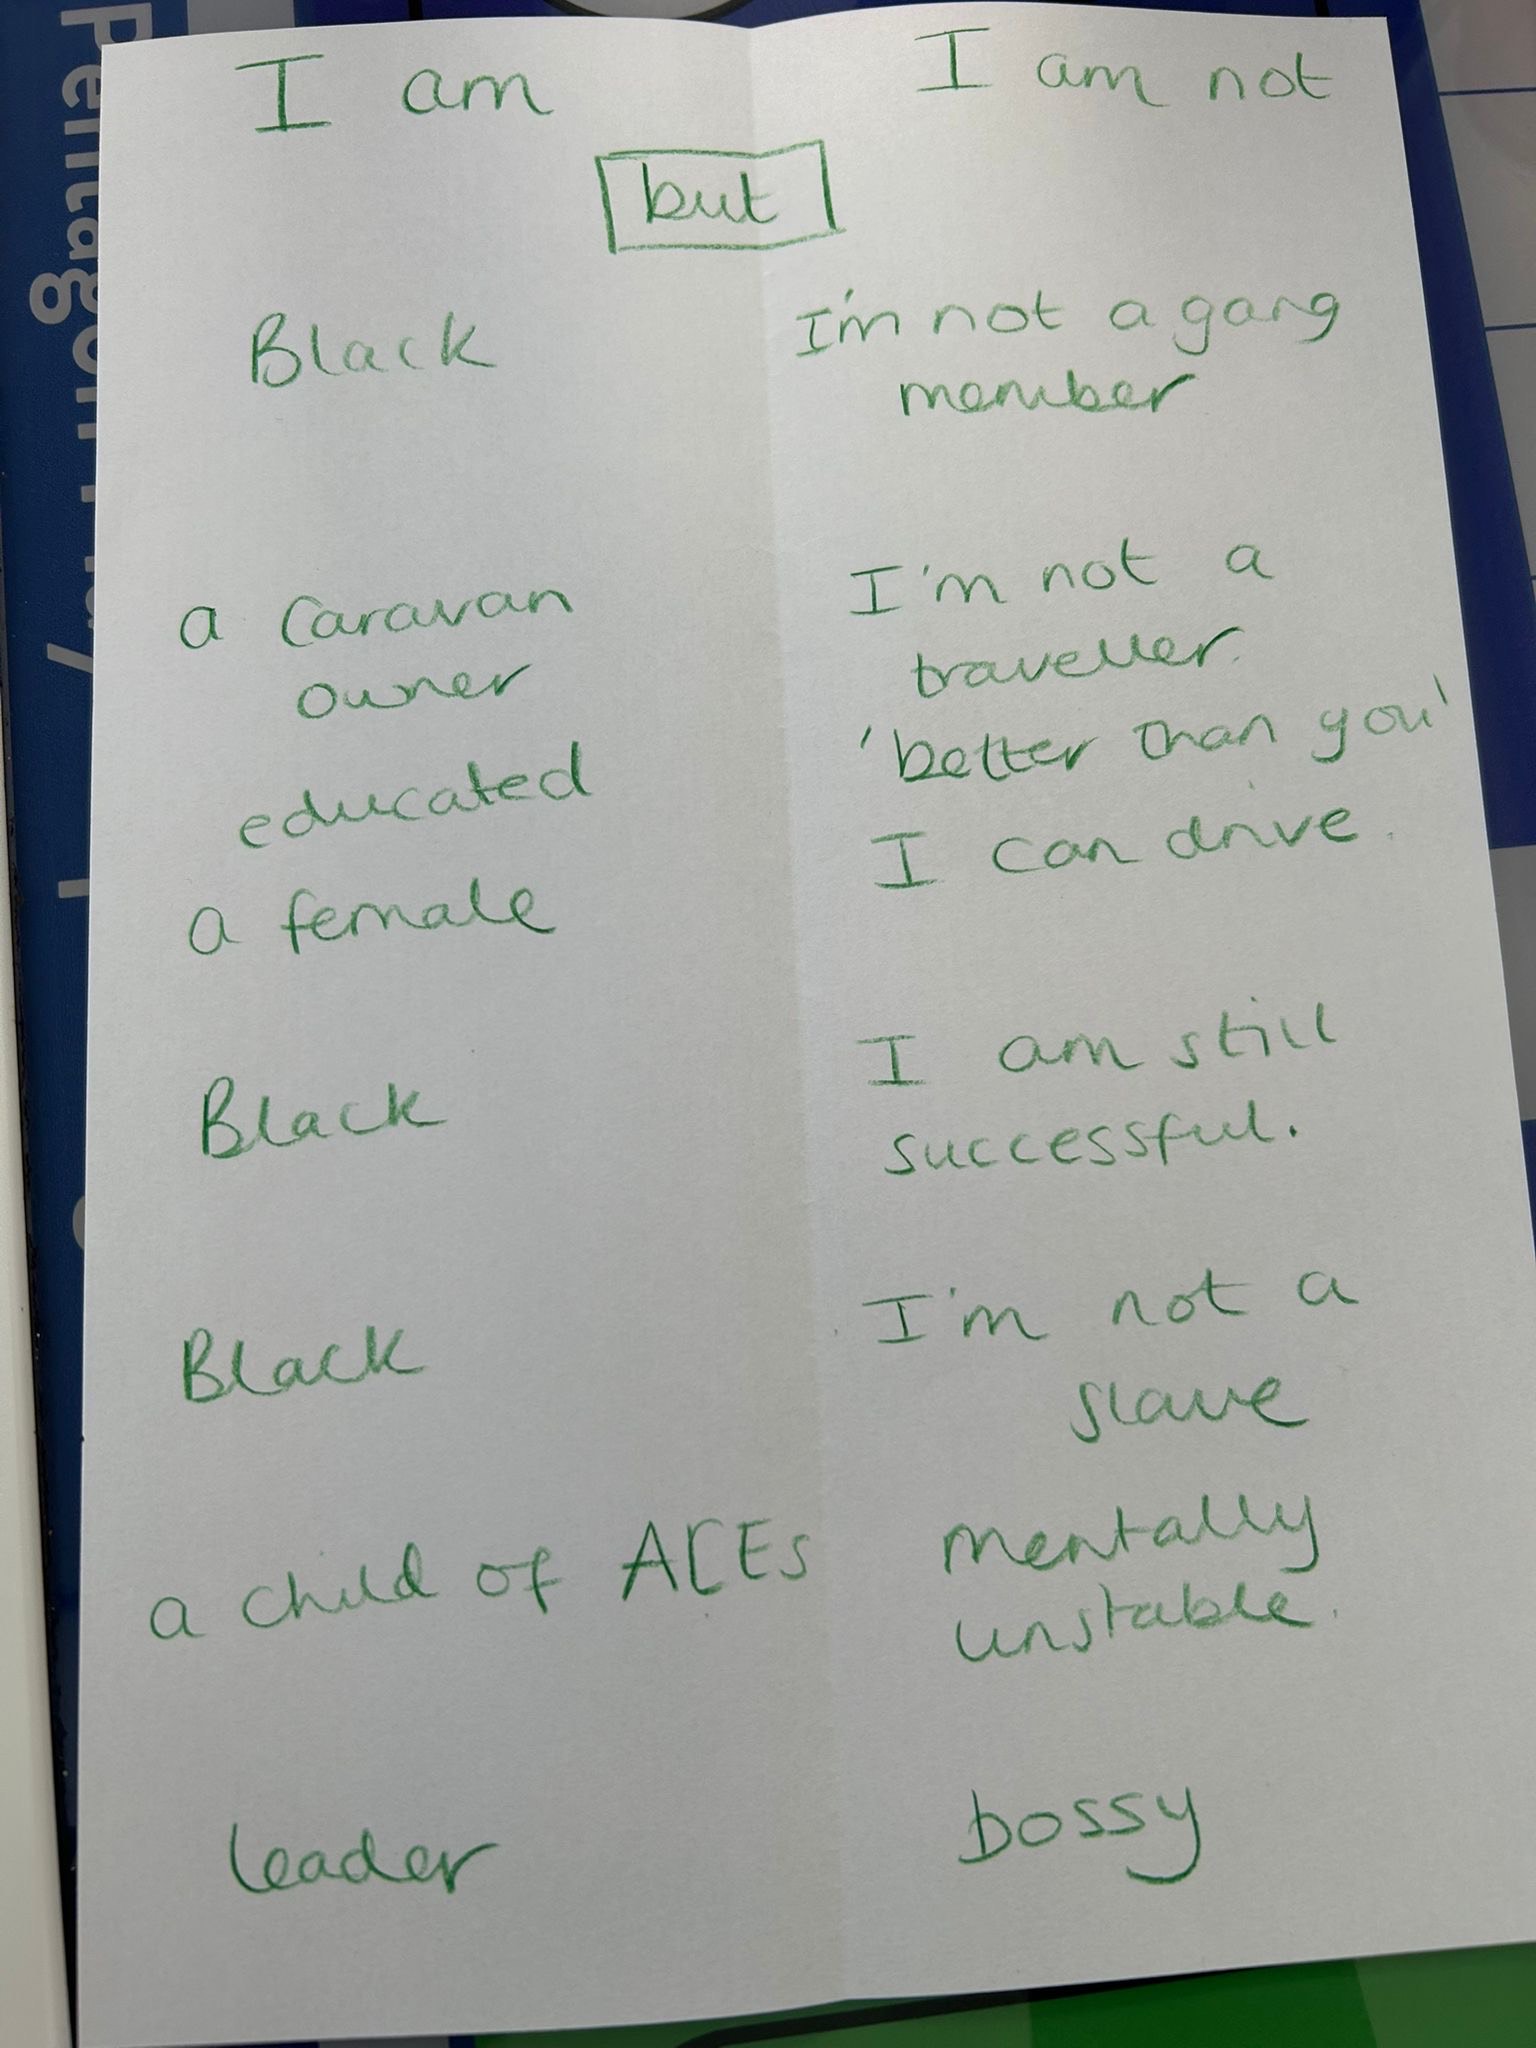 I am
I am not
but
Black
I'm not a gang
member
a caravan
owner
I'm not a
traveller.
educated
'better than you'
a female
I can drive.
Black
I am still
successful.
Black
I'm not a
slave
a child of ACEs
mentally
unstable.
leader
bossy